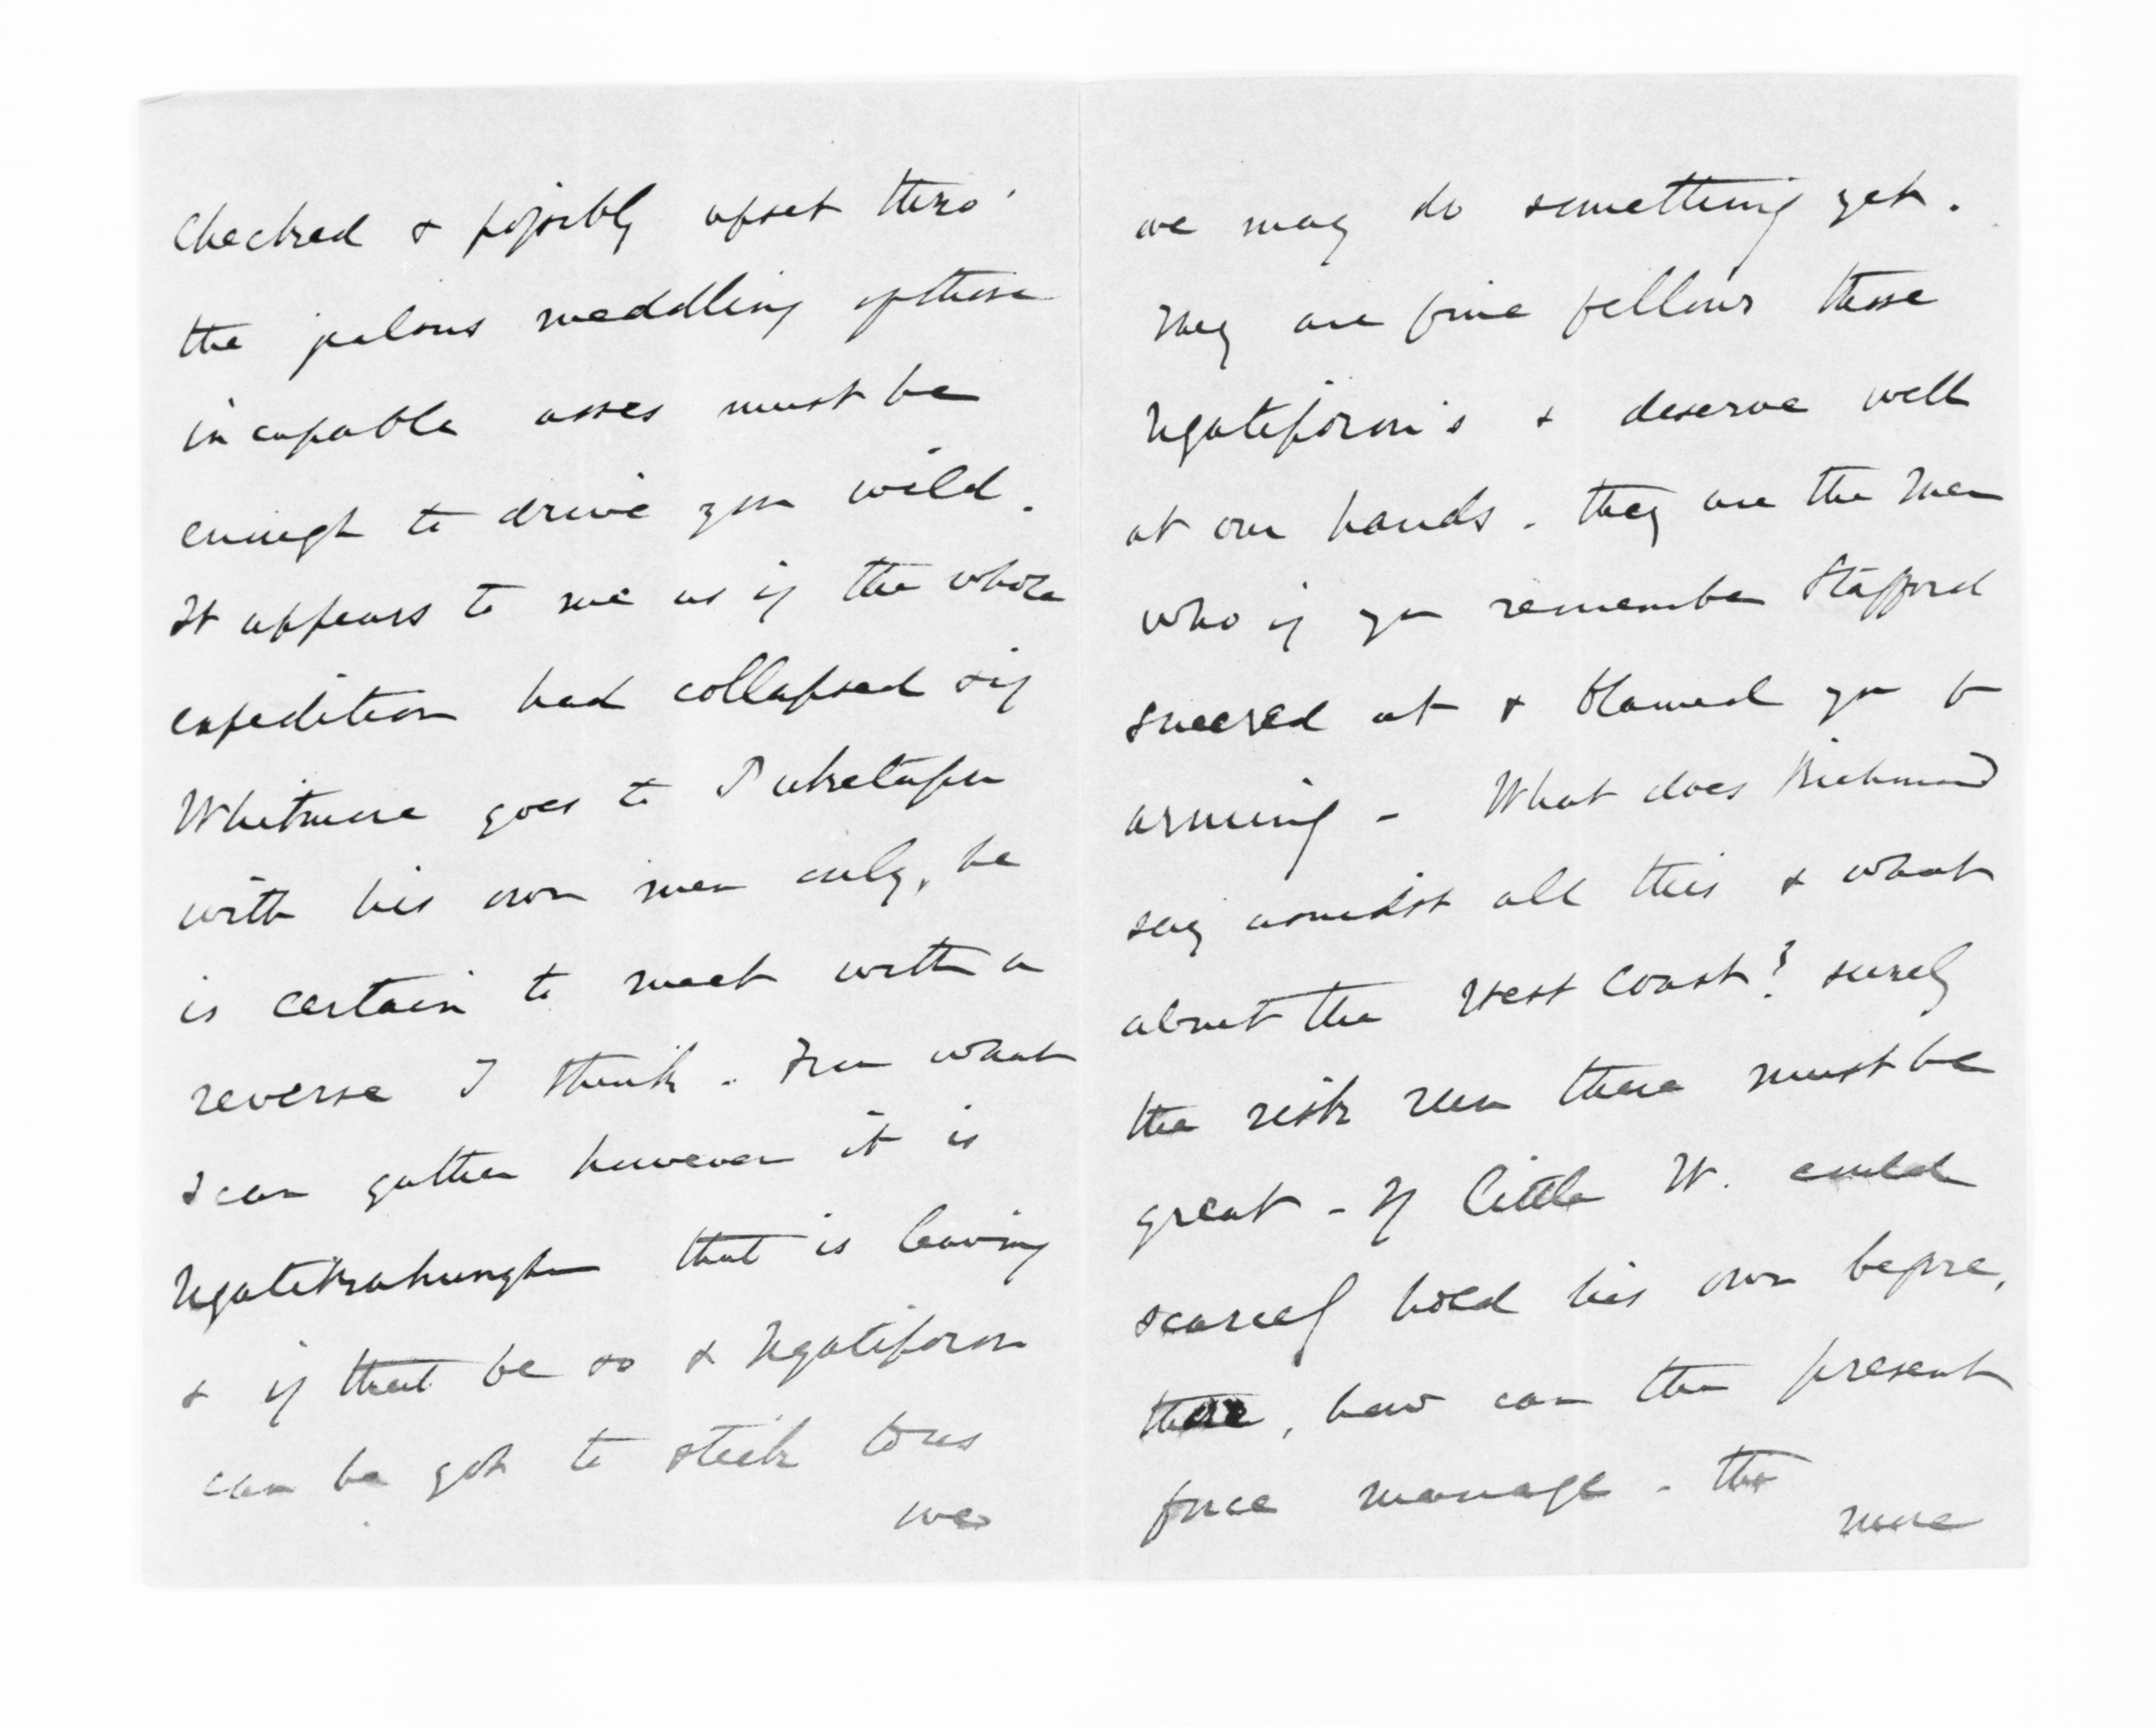 checked & possibly upset thro'
the jealous meddling of these
incapable asses must be
enough to drive you wild.
It appears to me as if the whole
expedition had collapsed & if
Whitmore goes to Puketapu
with his own men only, he
is certain to meet with a
reverse I think. From what
I can gather however it is
Ngatikahungunu that is leaving
& if that be so & Ngatiporou
can be got to stick to us
we
we may do something yet.
They are fine fellows those
Ngatiporou's & deserve well
at our hands. they are the men
who if you remember Stafford
sneered at & blamed you for
arming - What does Richmond
say amidst all this & what
about the West Coast? surely
the risk run there must be
great - If little W. could
scarcely hold his own before,
there, how can the present
force manage - the
more